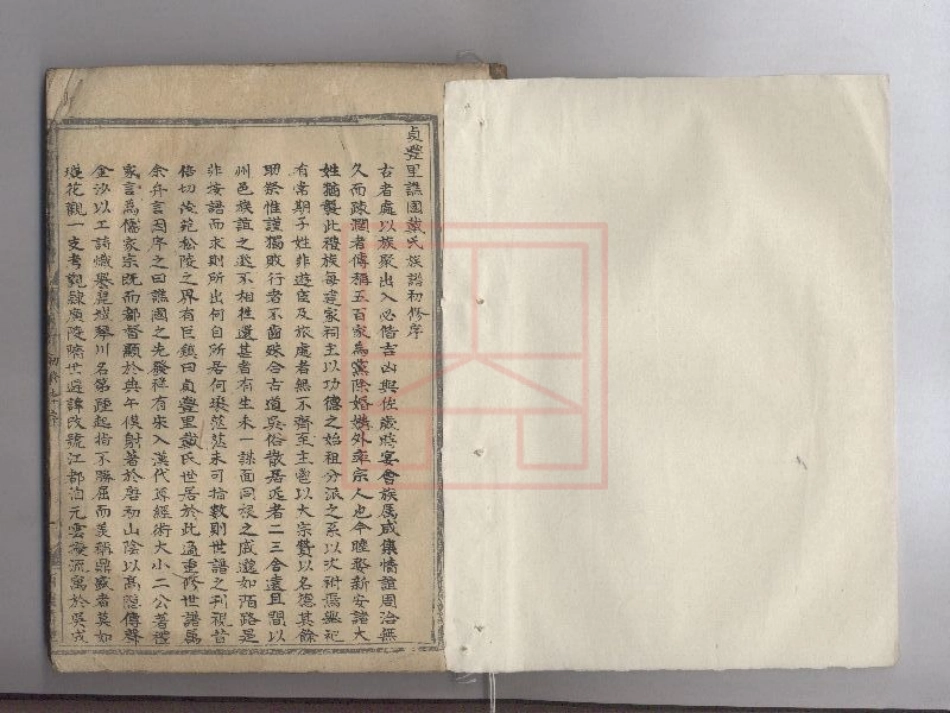 貞豐里譙國戴氏族譜初修序
古者處以族聚出入必偕吉凶與佐歲時宴會族属咸集情誼周洽無
久而疎濶者傳稱五百家為黨除婚媾外率宗人也今睦婺新安諸大
姓猶襲此禮族每建家祠主以功德之始祖分派之系以次祔焉禴祀
有常期子姓非遊宦及旅處者無不齊至主鬯以大宗贊以名德其餘
助祭惟謹獨敗行者不齒殊合古道吳俗散居近者二三舍遠且間以
州邑族誼之遂不相維還甚者有生未一謀面同根之戚邈如陌路是
非按譜而求則所出何自所居何塟茫茫未可指數則世譜之刊視昔
倍切茂苑松陵之界有巨鎮曰貞豐里戴氏世居於此適重修世譜属
余弁言因序之曰譙國之先發祥有宋入漢代專經術大小二公著禮
家言為儒家宗既而都督顯於典午僕射著於唐初山陰以高隱傳聲
金沙以工詩幟譽琴川名第踵起指不勝屈而羙稱鼎盛者莫如
瓊花觀一支考觀隸廣陵曠世避諱改號江都泊元雲流寓於吳成